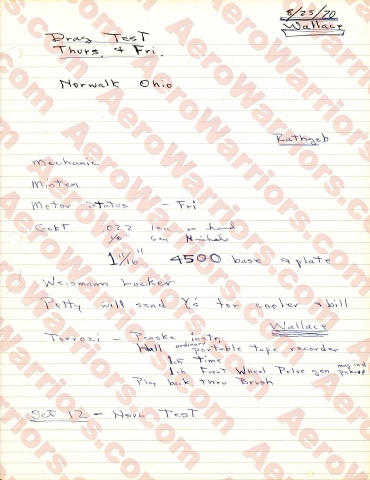 8/25/70
Wallace
Drag Test
Thurs. & Fri.
Norwalk Ohio
Rathgeb
Mechanic
Minten
Motor Status - Fri
Gskt .022 1ea on hand
1/16" 6ea
1 11/16" 4500 base & plate
Weismann Locker
Petty will send Ys for cooler & bill
Wallace
Torrozi - Proske instr.
Hall ordinary portable tape recorder
1ch time
1ch Front Wheel Pulse gen mag ind pick-up
Play back thru Brush
Set 12 - Nova Test
AeroWarriors.com